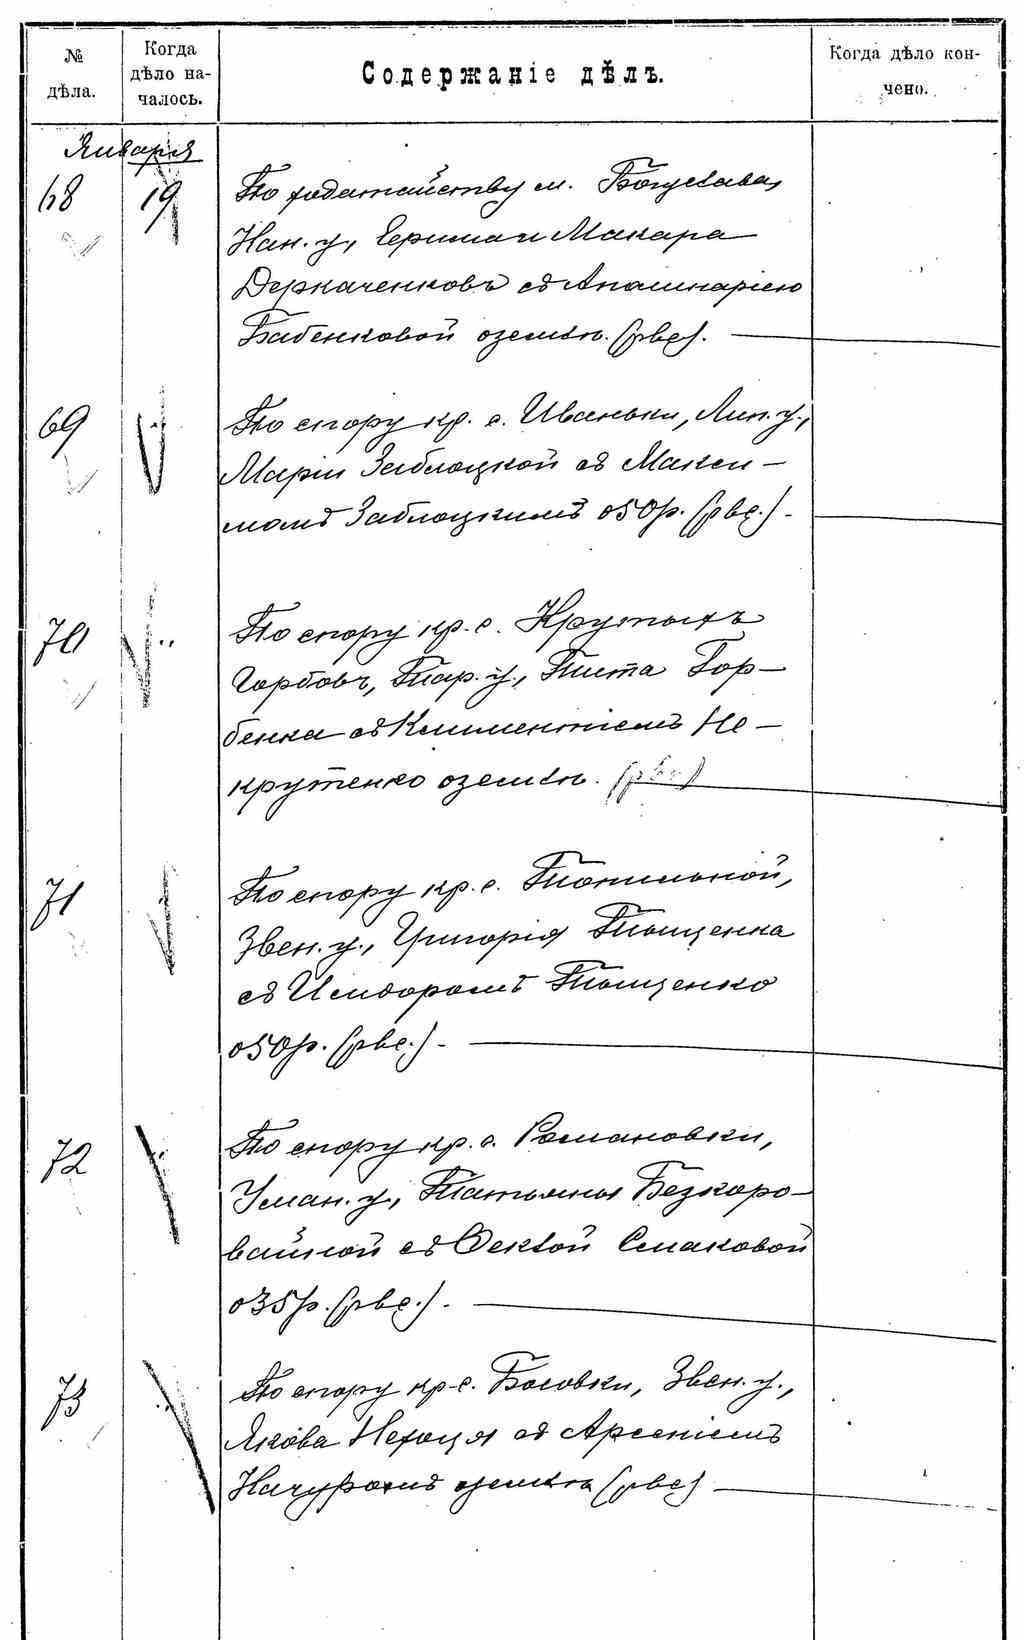 № дѣла.
Когда дѣло на-чалось.
Содержаніе дѣлъ.
Когда дѣло кон-чено.
Января
68 19 По ходатайству м. Богуслава,
Кан. у., Ермила и Макара
Деркаченковъ съ Аполинаріею
Бабенковой о землѣ. (рвс).
69 По спору кр. с. Иваньки, Лип. у.,
Маріи Заблоцкой съ Макси-
момъ Заблоцкимъ о 50 р. (рвс.).
70 По спору кр. с. Крутыхъ
Горбовъ, Тар. у., Тита Гор-
бенка съ Климентіемъ Не-
крутенко о землѣ. (рвс)
71 По спору кр. с. Топильной,
Звен. у., Григорія Тыщенка
съ Исидоромъ Тыщенко
о 50 р. (рвс.).
72 По спору кр. с. Романовки,
Уман. у., Татьяны Безкоро-
вайной съ Феклой Смаковой
о 35 р. (рвс.).
73 По спору кр. с. Босовки, Звен. у.,
Якова Нехоця съ Арсеніемъ
о землѣ (рвс)